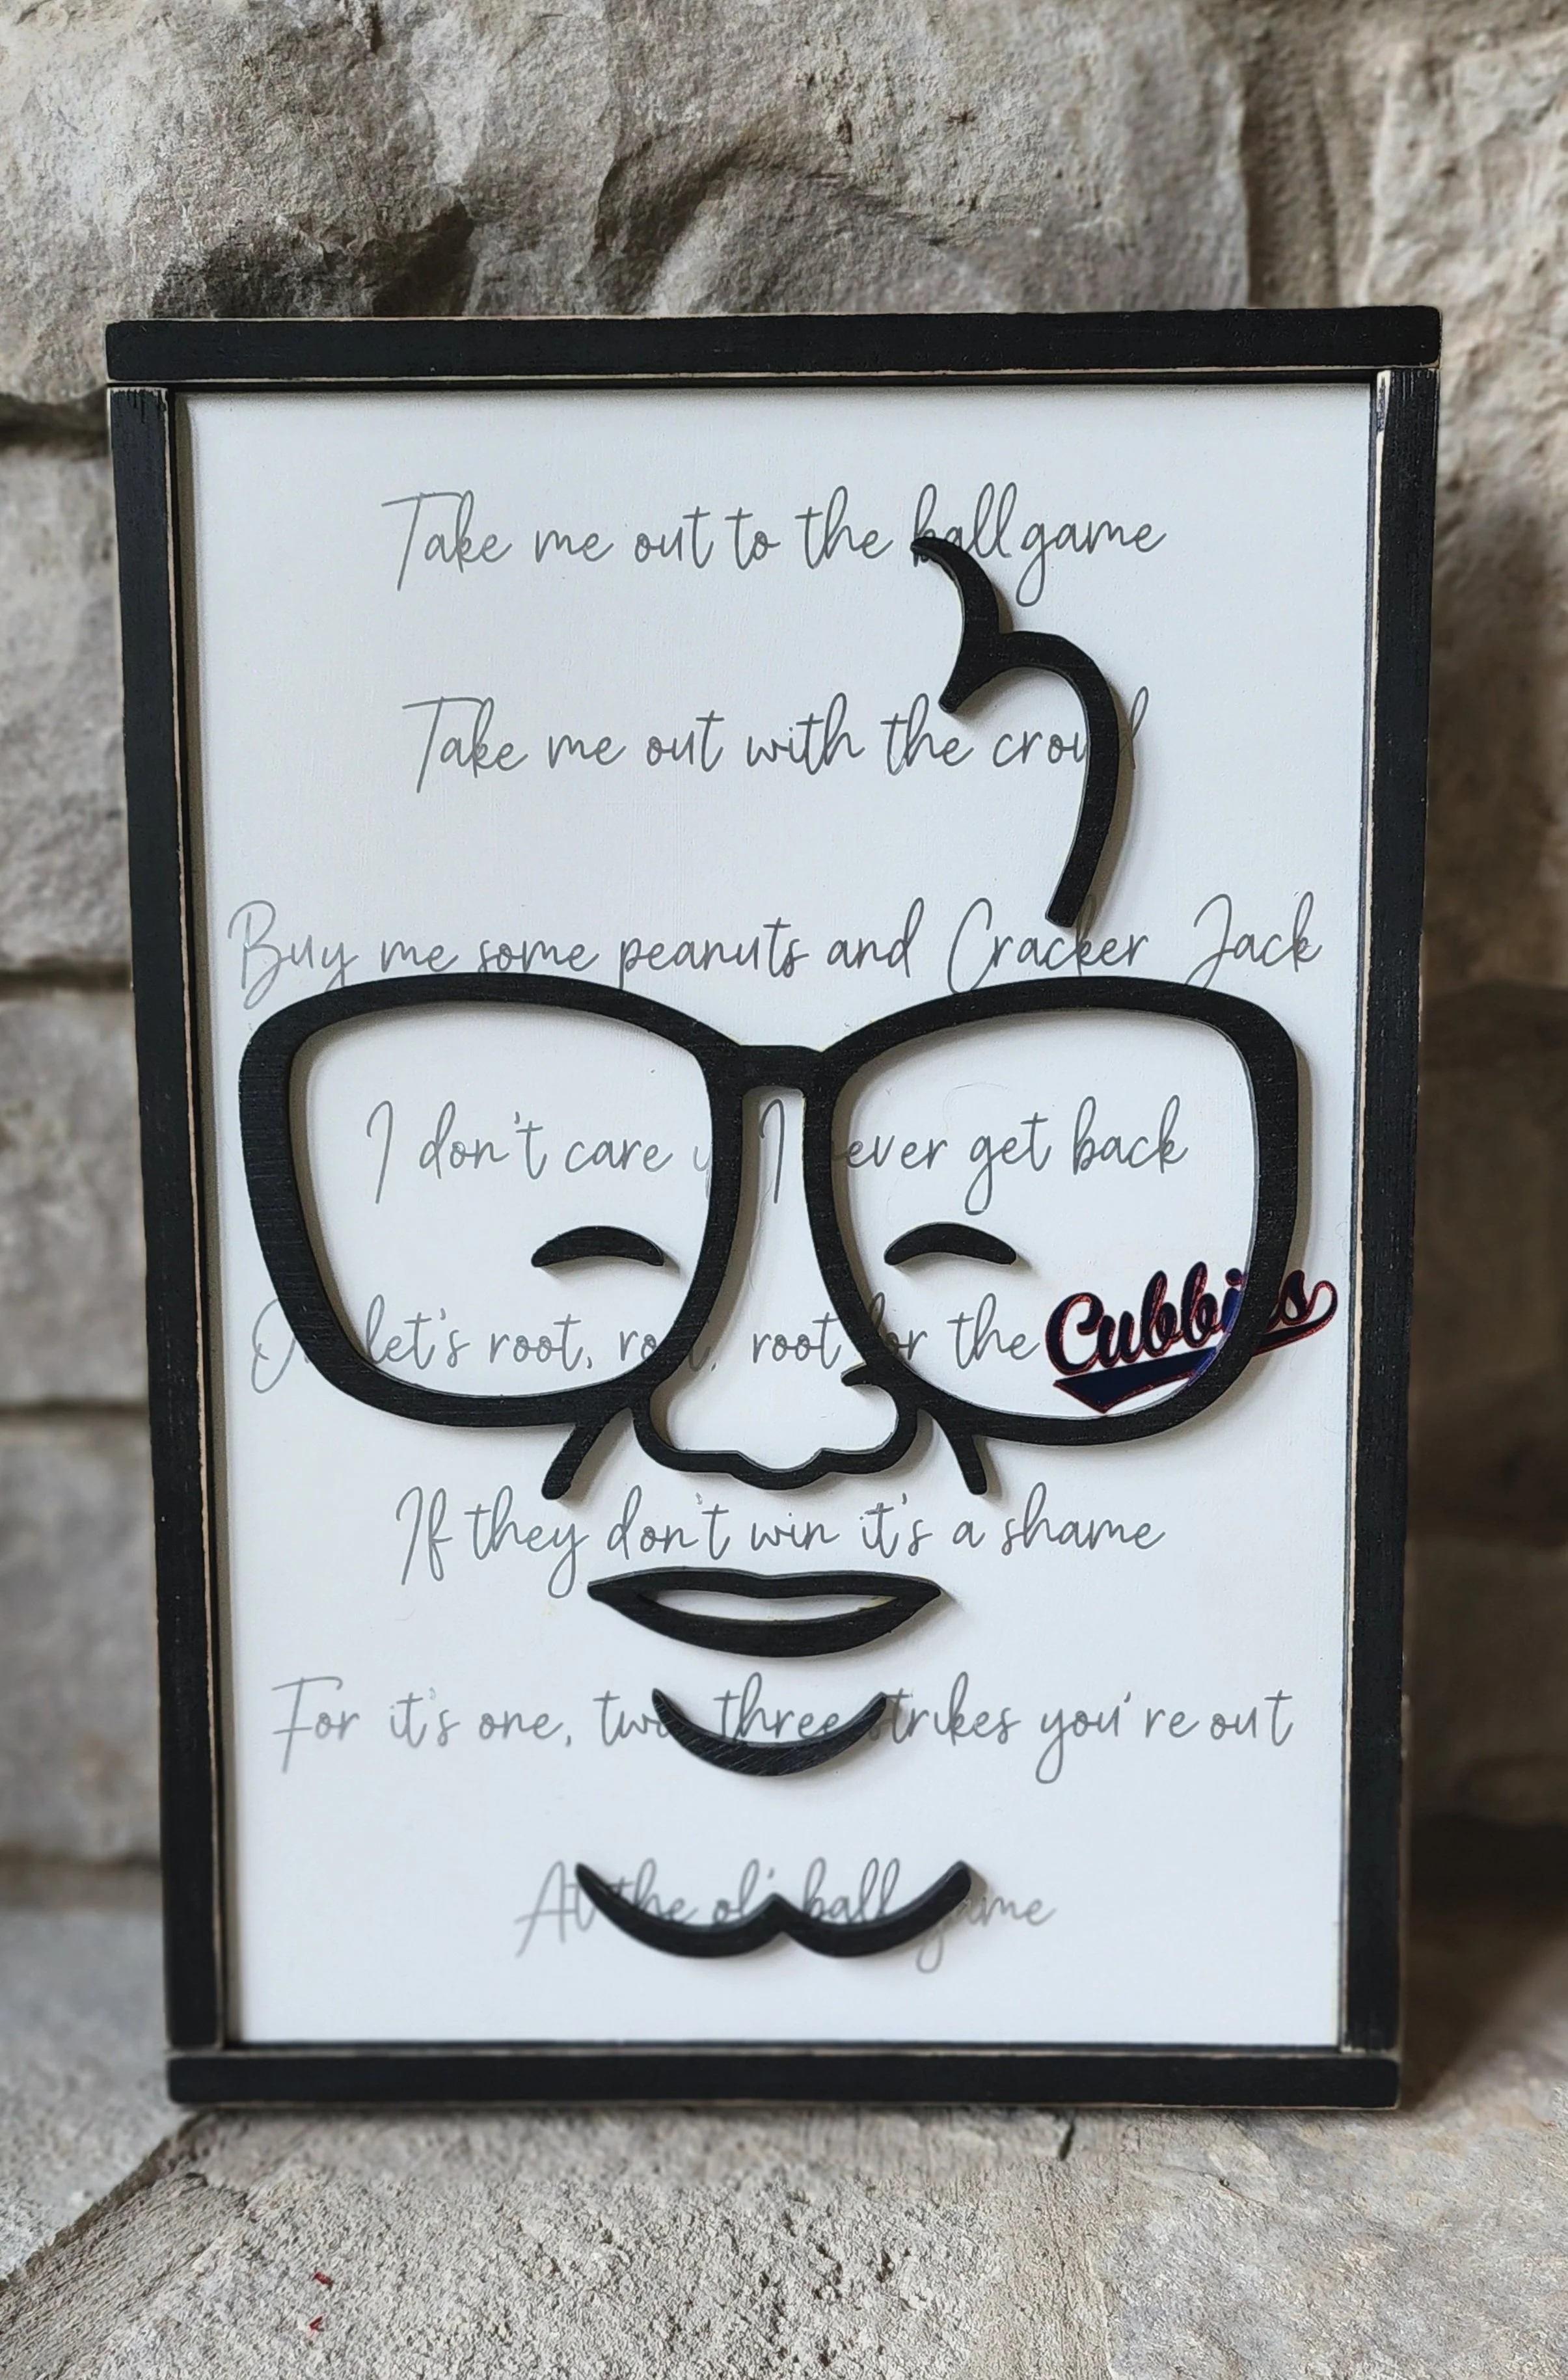 Take me out to the ballgame
Take me out with the crowd
Buy me some peanuts and Cracker Jack
I don't care if I ever get back
let's root, root, root for the Cubbies
If they don't win it's a shame
For it's one, two, three strikes you're out
At the ol' ball game